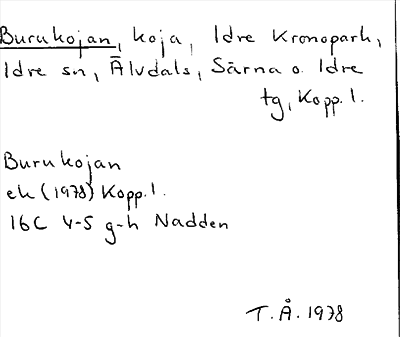 Burukojan, koja, Idre Kronopark,
Idre sn, Älvdals, Särna o. Idre
tg, Kopp. l.
Burukojan
ek (1978) Kopp. l.
16C 4-5 g-h Nadden
T.Å. 1978